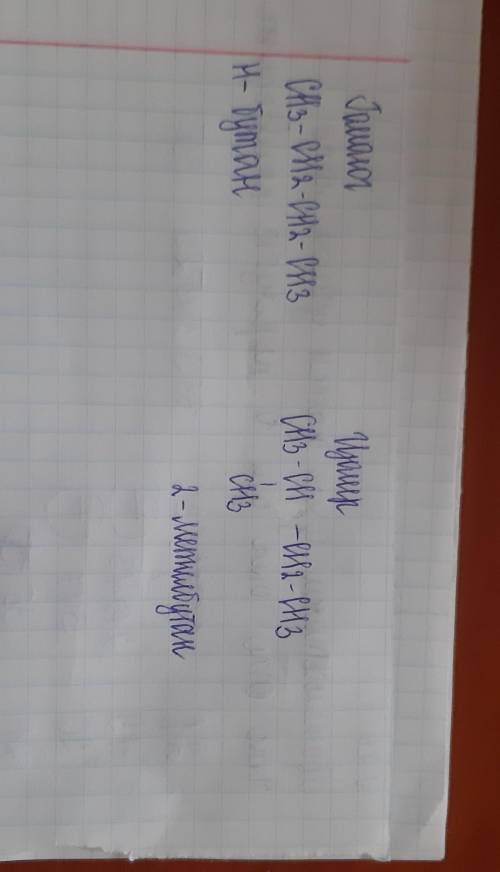 Гомолог
CH3-CH2-CH2-CH3
н-бутан
Изомер
CH3-CH-CH2-CH3
CH3
2-метилбутан